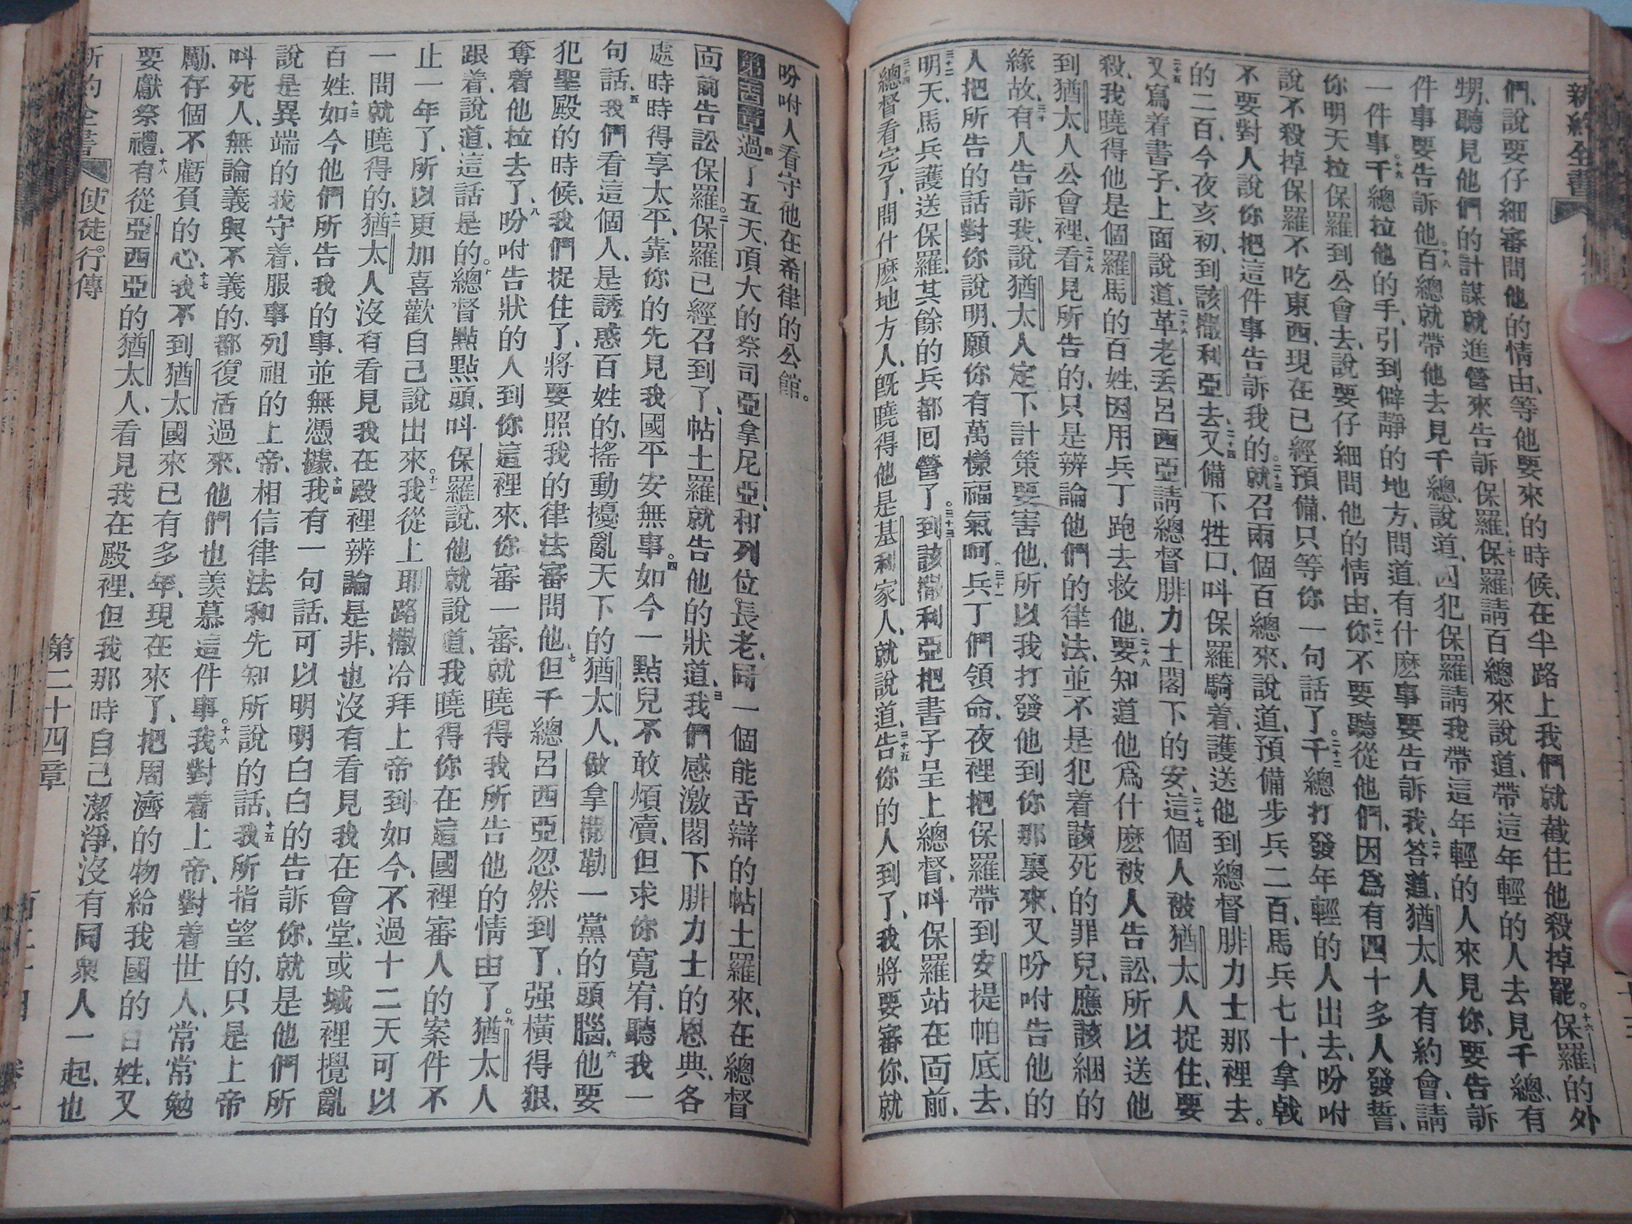 新約全書
們、說要仔細審問他的情由、等他要來的時候、在半路上我們就截住他殺掉罷。十六保羅的外
甥、聽見他們的計謀就進營來告訴保羅、十七保羅請百總來說道、帶這年輕的人去見千總、有
件事要告訴他、十八百總就帶他去見千總、說道、囚犯保羅請我帶這年輕的人來見你、要告訴
一件事、十九千總拉他的手、引到僻靜的地方、問道有什麽事要告訴我、二十答道、猶太人有約會、請
你明天拉保羅到公會去、說要仔細問他的情由、二十一你不要聽從他們、因爲有四十多人發誓、
說不殺掉保羅不吃東西、現在已經預備、只等你一句話了。二十二千總打發年輕的人出去、吩咐
不要對人說你把這件事告訴我的。二十三就召兩個百總來、說道、預備步兵二百、馬兵七十、拿戟
的二百、今夜亥初、到該撒利亞去、二十四又備下牲口、呌保羅騎着、護送他到總督腓力士那裡去。
二十五又寫着書子、上面說道、二十六革老丢呂西亞請總督腓力士閣下的安、二十七這個人被猶太人捉住、要
殺、我曉得他是個羅馬的百姓、因用兵丁跑去救他、二十八要知道他爲什麽被人告訟、所以送他
到猶太人公會裡、二十九看見所告的、只是辨論他們的律法、並不是犯着該死的罪兒、應該綑的
緣故、三十有人告訴我說猶太人定下計策要害他、所以我打發他到你那裏來、又吩咐告他的
人把所告的話對你說明、願你有萬樣福氣呵、三十一兵丁們領命、夜裡把保羅帶到安提帕底去、
三十二明天、馬兵護送保羅、其餘的兵都回營了。三十三到該撒利亞把書子呈上總督、呌保羅站在面前、
三十四總督看完了、問什麽地方人、旣曉得他是基利家人、就說道、三十五告你的人到了、我將要審你、就
吩咐人看守他在希律的公館。
第二十四章過了五天、頂大的祭司亞拿尼亞、和列位長老、同一個能舌辯的帖土羅來、在總督
面前告訟保羅。保羅已經召到了、帖土羅就告他的狀道、三我們感激閣下腓力士的恩典、各
處時時得享太平、靠你的先見我國平安無事。四如今一點兒不敢煩瀆、但求你寬宥、聽我一
句話、五我們看這個人、是誘惑百姓的、搖動擾亂天下的猶太人、做拿撒勒一黨的頭腦、六他要
犯聖殿的時候、我們捉住了、將要照我的律法審問他、七但千總呂西亞忽然到了、强橫得狠、
奪着他拉去了、八吩咐告狀的人到你這裡來、你審一審、就曉得我所告他的情由了。九猶太人
跟着、說道、這話是的。十總督點點頭、呌保羅說、他就說道、我曉得你在這國裡審人的案件不
止一年了、所以更加喜歡自己說出來。十一我從上耶路撒冷拜上帝到如今、不過十二天可以
一問就曉得的、十二猶太人沒有看見我在殿裡辨論是非、也沒有看見我在會堂、或城裡攪亂
百姓、十三如今他們所告我的事、並無憑據、十四我有一句話、可以明明白白的告訴你、就是他們所
說是異端的我守着、服事列祖的上帝、相信律法和先知所說的話、十五我所指望的、只是上帝
呌死人、無論義與不義的、都復活過來、他們也羡慕這件事。十六我對着上帝、對着世人、常常勉
勵、存個不虧負的心、十七我不到猶太國來已有多年、現在來了、把周濟的物給我國的百姓、又
要獻祭禮、十八有從亞西亞的猶太人、看見我在殿裡、但我那時自己潔淨、沒有同衆人一起、也
新約全書 使徒行傳 第二十四章